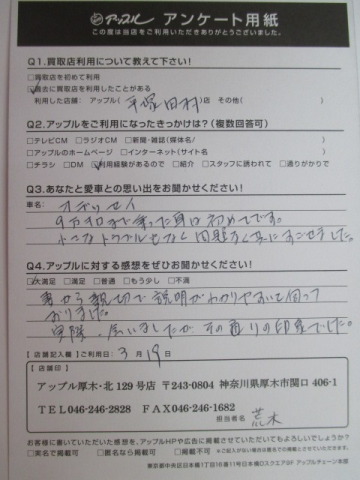 アップル アンケート用紙
この度は当店をご利用いただきありがとうございました。
Q1.買取店利用について教えて下さい!
□買取店を初めて利用
☑過去に買取店を利用したことがある
利用した店舗: アップル(平塚田村)店 その他( )
Q2.アップルをご利用になったきっかけは?(複数回答可)
□テレビCM □ラジオCM □新聞・雑誌(媒体名/ )
□アップルのホームページ □インターネット(サイト名 )
□チラシ □DM ☑利用経験があるので □紹介 □スタッフに誘われて □通りがかりで
Q3.あなたと愛車との思い出をお聞かせください!
車名: オデッセイ
9万キロまで乗った車は初めてです。
トラブルもなく
Q4.アップルに対する感想をぜひお聞かせください!
☑大満足 □満足 □普通 □もう少し □不満
妻から親切で説明がわかりやすいと伺って
おりました。
実際、会いましたがその通りの印象でした。
【店舗記入欄】ご利用日: 3月19日
【店舗印】
アップル厚木・北129号店 〒243-0804 神奈川県厚木市関口406-1
TEL046-246-2828 FAX046-246-1682
担当者名 荒木
お客様に書いていただいた感想を、アップルHPや広告に掲載させていただいてもよろしいでしょうか?
□実名で掲載可 □匿名なら掲載可 □掲載不可
東京都中央区日本橋1丁目16番11号日本橋DスクエアBF アップルチェーン本部